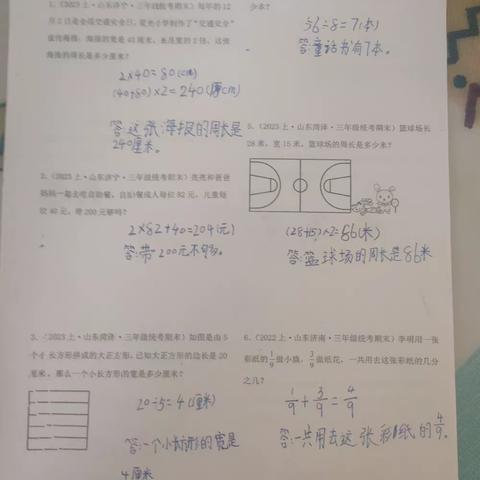 1.(2023上·山东济宁·三年级统考期末)每年的12
月2日是全国交通安全日,爱光小学制作了“交通安全”
宣传海报,海报的宽是40厘米,长是宽的2倍,这张
海报的周长是多少厘米?
2×40=80(cm)
(40+80)×2=240(厘cm)
答:这张海报的周长是
240厘米。
2.(2023上·山东济宁·三年级统考期末)亮亮和爸爸
妈妈一起去吃自助餐,自助餐成人每位82元,儿童每
位40元,带200元够吗?
2×82+40=204(元)
答:带200元不够。
3.(2023上·山东菏泽·三年级统考期末)如图是由5
个小长方形拼成的大正方形,已知大正方形的边长是20
厘米,那么一个小长方形的宽是多少厘米?
20÷5=4(厘米)
答:一个小长方形的宽是
4厘米
少本?
56÷8=7(本)
答:童话书有7本。
5.(2023上·山东菏泽·三年级统考期末)篮球场长
28米,宽15米,篮球场的周长是多少米?
(28+15)×2=86(米)
答:篮球场的周长是86米
6.(2022上·山东济南·三年级统考期末)李明用一张
彩纸的1/9做小旗,3/9做纸花,一共用去这张彩纸的几分
之几?
1/9+3/9=4/9
答:一共用去这张彩纸的4/9。